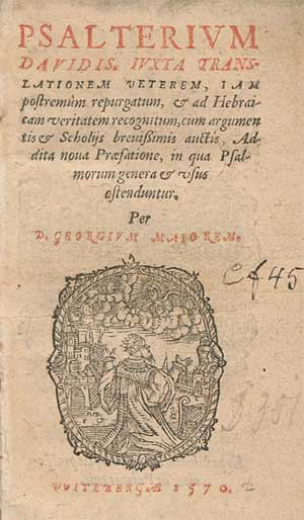 PSALTERIVM
DAVIDIS, IVXTA TRANS-
LATIONEM VETEREM, IAM
postremùm repurgatum, & ad Hebrai-
cam veritatem recognitum, cum argumen
tis & Scholijs breuißimis auctis, Ad-
dita noua Præfatione, in qua Psal-
morum genera & vsus
ostenduntur.
Per
D. GEORGIVM MAIOREM.
Cf 45
VVITEBERGÆ 1570.